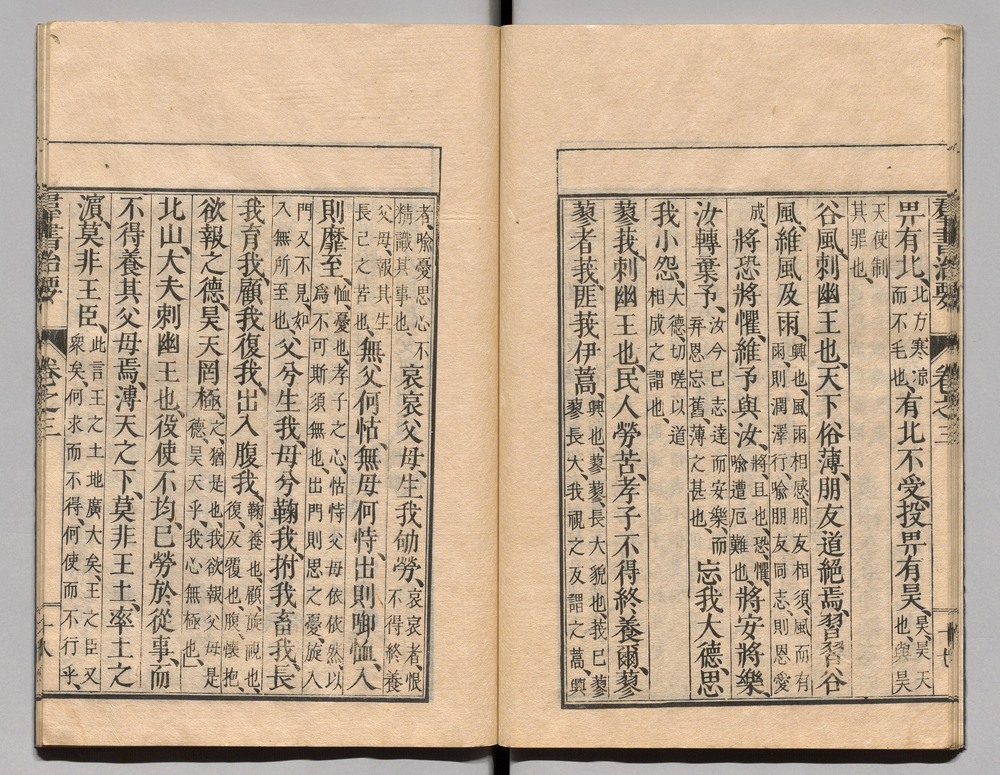 羣書治要 卷之三 十七
畀有北、北方寒凉、而不毛也、有北不受、投畀有昊、昊、昊天也、與昊
天使制其罪也、
谷風、刺幽王也、天下俗薄、朋友道絕焉、習習谷
風、維風及雨、興也、風雨相感、朋友相須、風而有雨、則潤澤行、喩朋友同志、則恩愛
成、將恐將懼、維予與汝、將且也、恐、懼、喩遭厄難也、將安將樂、
汝轉棄予、汝今已志達而安樂、而弃恩忘舊、薄之甚也、忘我大德、思
我小怨、大德、切嗟以道相成之謂也、
蓼莪、刺幽王也、民人勞苦、孝子不得終養爾、蓼
蓼者莪、匪莪伊蒿、興也、蓼蓼、長大貌也、莪已蓼蓼長大、我視之反謂之蒿、興
者、喩憂思心不精識其事也、哀哀父母、生我劬勞、哀哀者、恨不得終養
父母、報其生長己之苦也、無父何怙、無母何恃、出則銜恤、入
則靡至、恤、憂也、孝子之心、怙恃父母、依依然、以爲不可斯須無也、出門則思之憂、旋入
門又不見、如入無所至也、父兮生我、母兮鞠我、拊我畜我、長
我育我、顧我復我、出入腹我、鞠、養也、顧、旋視也、復、反覆也、腹、懷抱、
欲報之德、昊天罔極、之、猶是也、我欲報父母是德、昊天乎、我心無極也、
北山、大夫刺幽王也、役使不均、已勞於從事、而
不得養其父母焉、溥天之下、莫非王土、率土之
濱、莫非王臣、此言王之土地廣大矣、王之臣又衆矣、何求而不得、何使而不行乎、
羣書治要 卷之三 十八